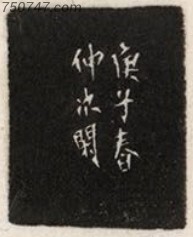 750747.com
庚子春
仲冰